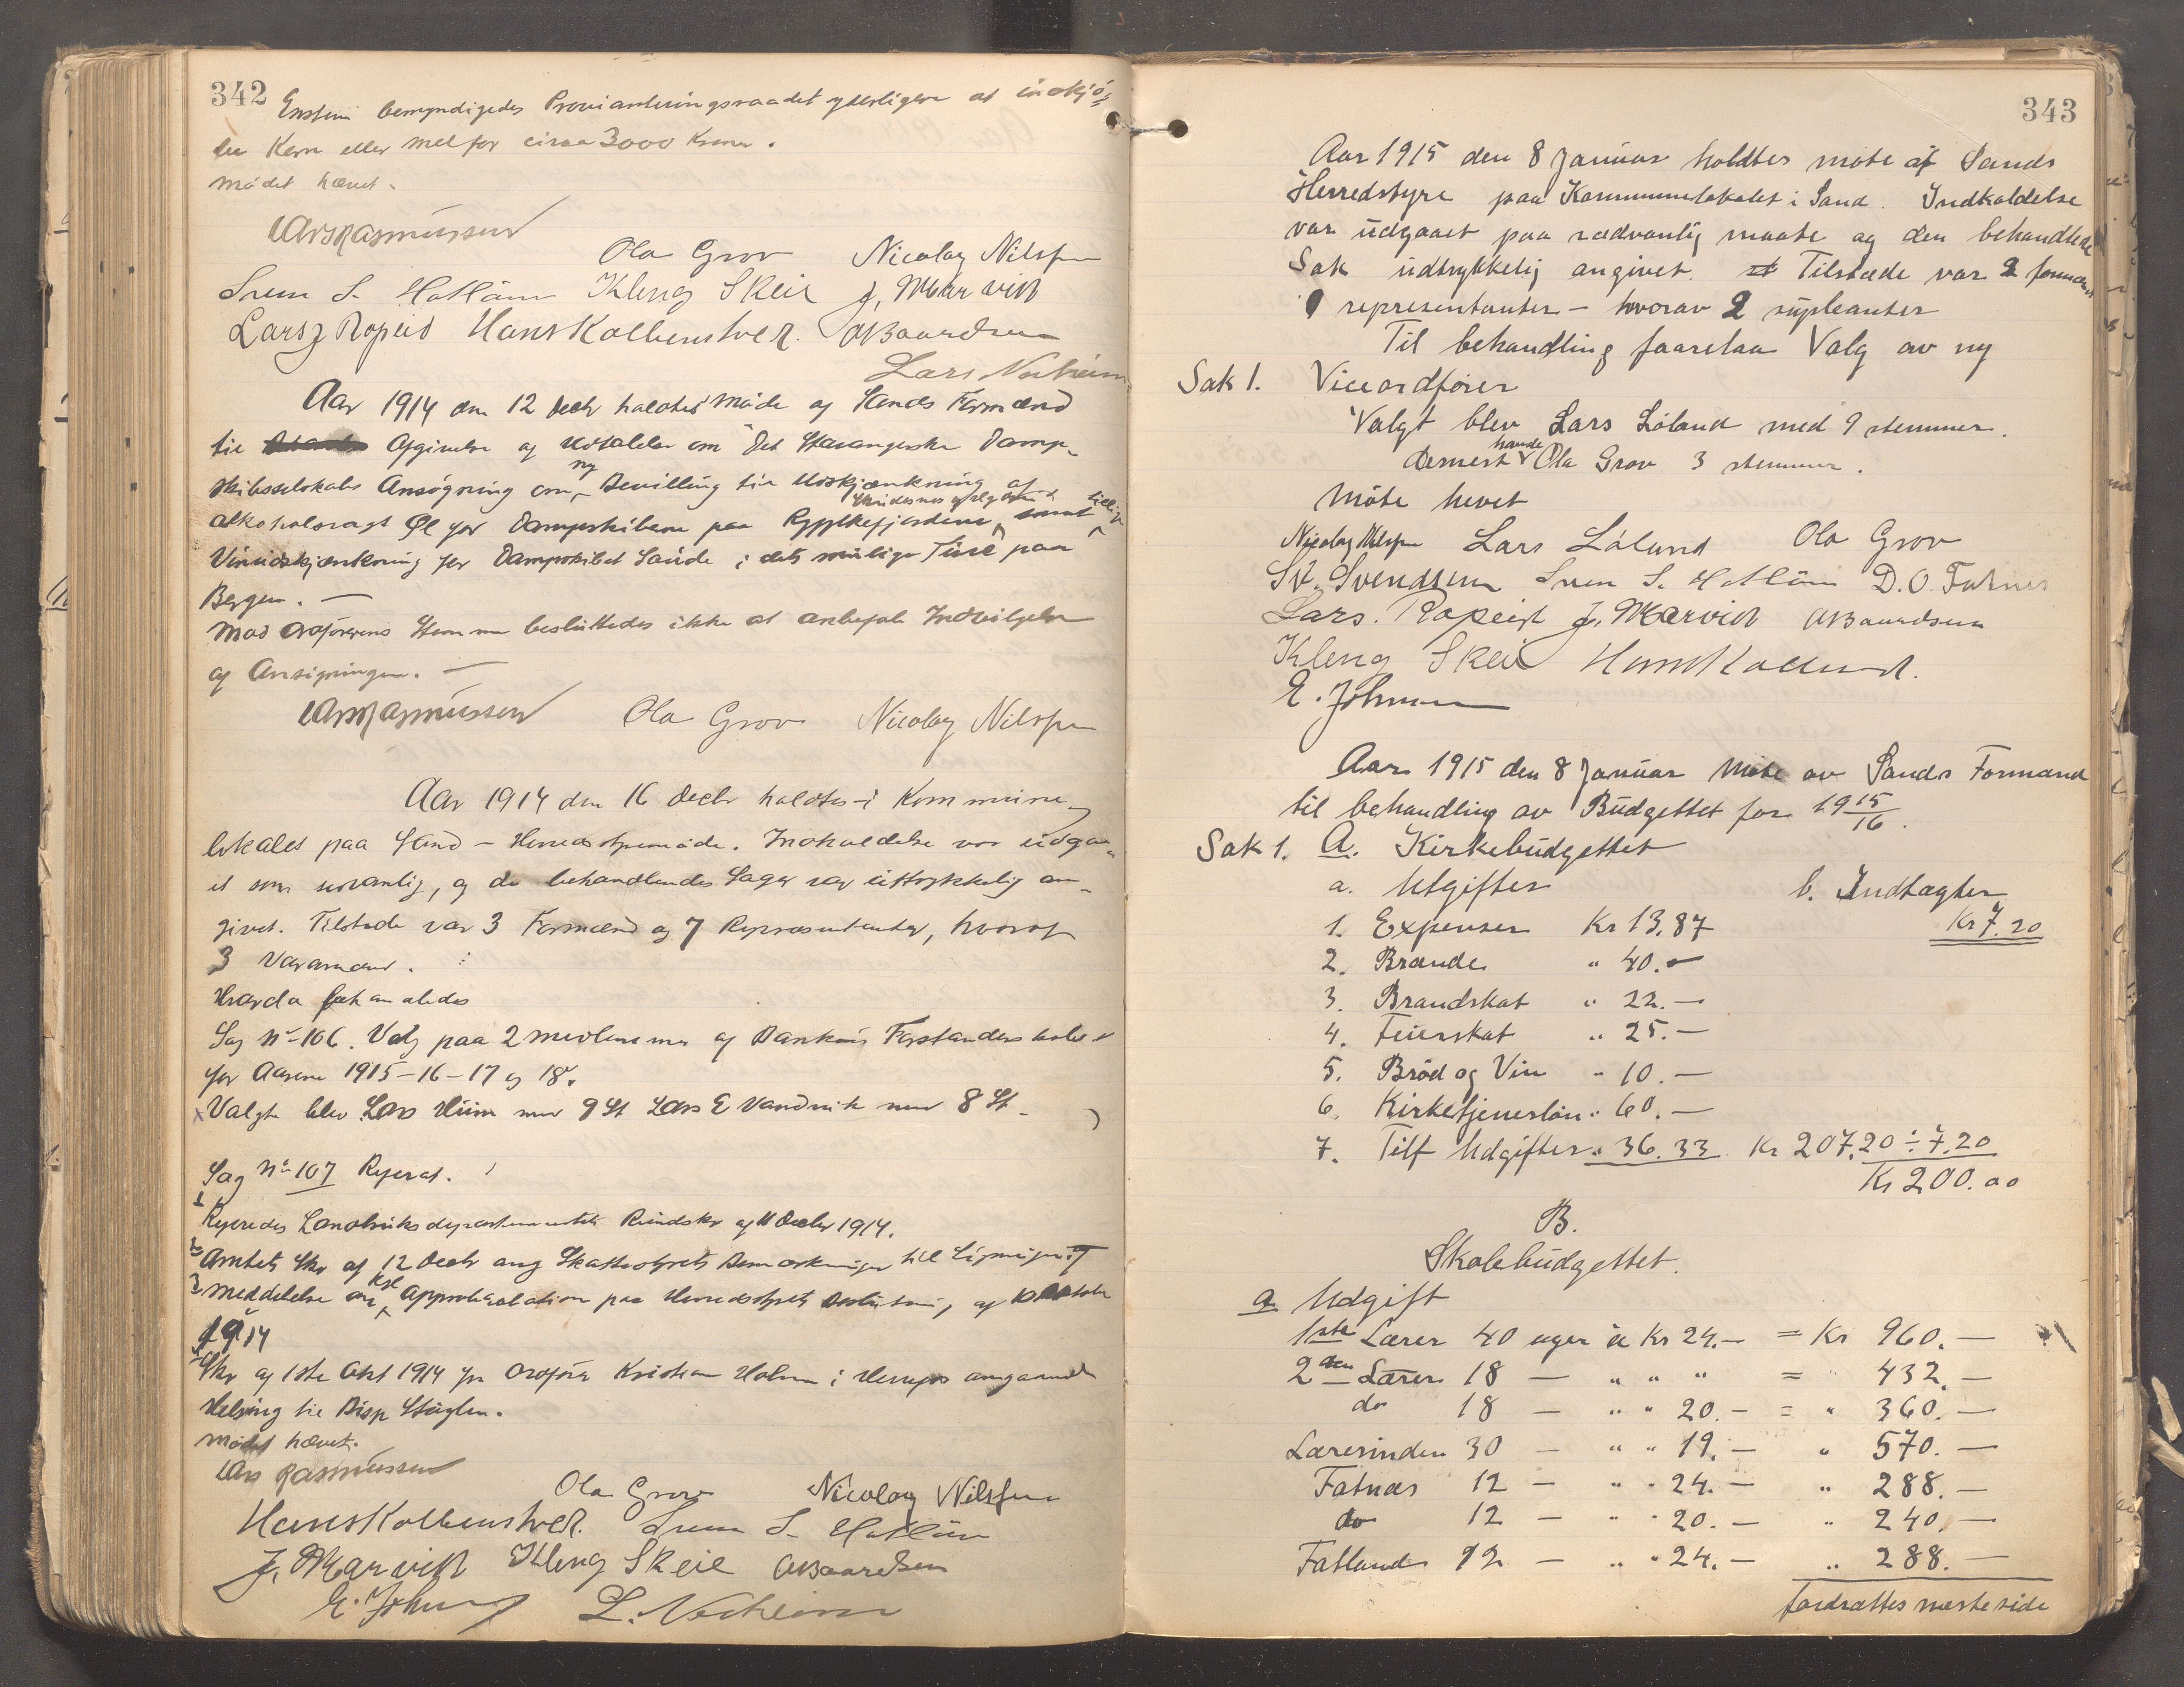 342
Enstem bemyndigedes Provianteringsraadet yderligere at indkjö-
be Korn eller Mel for circa 3000 Kroner.
Mødet hævet.
Lars Rasmussen
Ola Grov Nicolay Nilssen
Sven S. Hatløen Kleng Skeie J. Marvik
Lars J Ropeid Hans Kolbenstvedt. A Baardsen
Lars Nerheim
Aar 1914 den 12 Decbr holdtes Møde af Sands Formænd
til Afgivelse af Udtalelse om Det Stavangerske Damp-
skibsselskabs Ansøgning om ny Bevilling til Udskjænkning af
alkoholsvagt Øl for Dampskibene paa Ryfylkefjordene samt
Vinudskjænkning for Dampskibet Saude i dets ture paa
Bergen. —
Mod Ordførerens Stemme besluttedes ikke at anbefale Indvilgelse
af Ansøgningen. —
Lars Rasmussen Ola Grov Nicolay Nilssen
Aar 1914 den 16 Decbr holdtes i Kommune-
lokalet paa Sand - Herredsstyremøde. Indkaldelse var udgaa-
et som sedvanlig, og de behandlendes Sager var udtrykkelig an-
givet. Tilstede var 3 Formænd og 7 Repræsentanter, hvoraf
3 Varamænd.
Hvorda behandledes
Sag No 106. Valg paa 2 medlemmer af Bankens Forstanderskab
for Aarene 1915-16-17 og 18.
Valgt blev Lars Hiim med 9 St Lars E Vandvik med 8 St.
Sag No 107 Referat.
1 Refereredes Landbruksdepartementets Rundskr af 11 Decbr 1914.
2 Amtets Skr af 12 Decbr ang Skattestyrets Bemærkninger til Ligningen
3 Meddelelse om kgl Approbation paa Herredsstyrets Beslutning af 10 Oktober
1914
Skr af 1ste Okt 1914 fra Ordfører Kristian Holm i angaaende
Helsing til Bisp Støylen.
Mødet hævet.
Lars Rasmussen
Ola Grov Nicolay Nilssen
Hans Kolbenstvedt. Sven S. Hatløen
J. Marvik Kleng Skeie A Baardsen
E. Johnsen L. Nerheim
343
Aar 1915 den 8 Januar holdtes møte af Sands
Herredstyre paa Kommunelokalet i Sand. Indkaldelse
var udgaaet paa sædvanlig maate og den behandlede
Sak udtrykkelig angivet. Tilstæde var 2 formænd
9 representanter - hvorav 2 supleanter
Til behandling foorelaa Valg av ny
Sak 1. Viceordfører
Valgt blev Lars Løland med 9 stemmer.
dernest havde Ola Grov 3 stemmer.
Møte hevet
Nicolay Nilssen Lars Løland Ola Grov
St. Svendsen Sven S. Hatløen D. O. Fatnes
Lars. Ropeid J. Marvik A Baardsen
Kleng Skeie Hans Kolbenstvedt.
E. Johnsen
Aar 1915 den 8 Januar Møte av Sands Formænd
til behandling av Budgettet for 1915/16.
Sak 1. A. Kirkebudgettet
a. Utgifter b. Indtægter
1. Expenser Kr 13,87 Kr 7.20
2. Brænde " 40.-
3. Brandskat " 22.-
4. Feierskat " 25.-
5. Brød og Vin " 10.-
6. Kirketjenerløn " 60.-
7. Tilf Udgifter " 36.33 Kr 207.20 ÷ 7.20
Kr 200.00
B.
Skolebudgettet.
a Udgift
1ste Lærer 40 uger à Kr 24.- = Kr 960.-
2den Lærer 18 — " " " = " 432.-
do 18 — " " 20.- = " 360.-
Lærerinden 30 — " " 19.- " 570.-
Fatnæs 12 — " " 24.- " 288.-
do 12 — " " 20.- " 240.-
Fatland 12 — " " 24.- " 288.-
fordsættes næste side